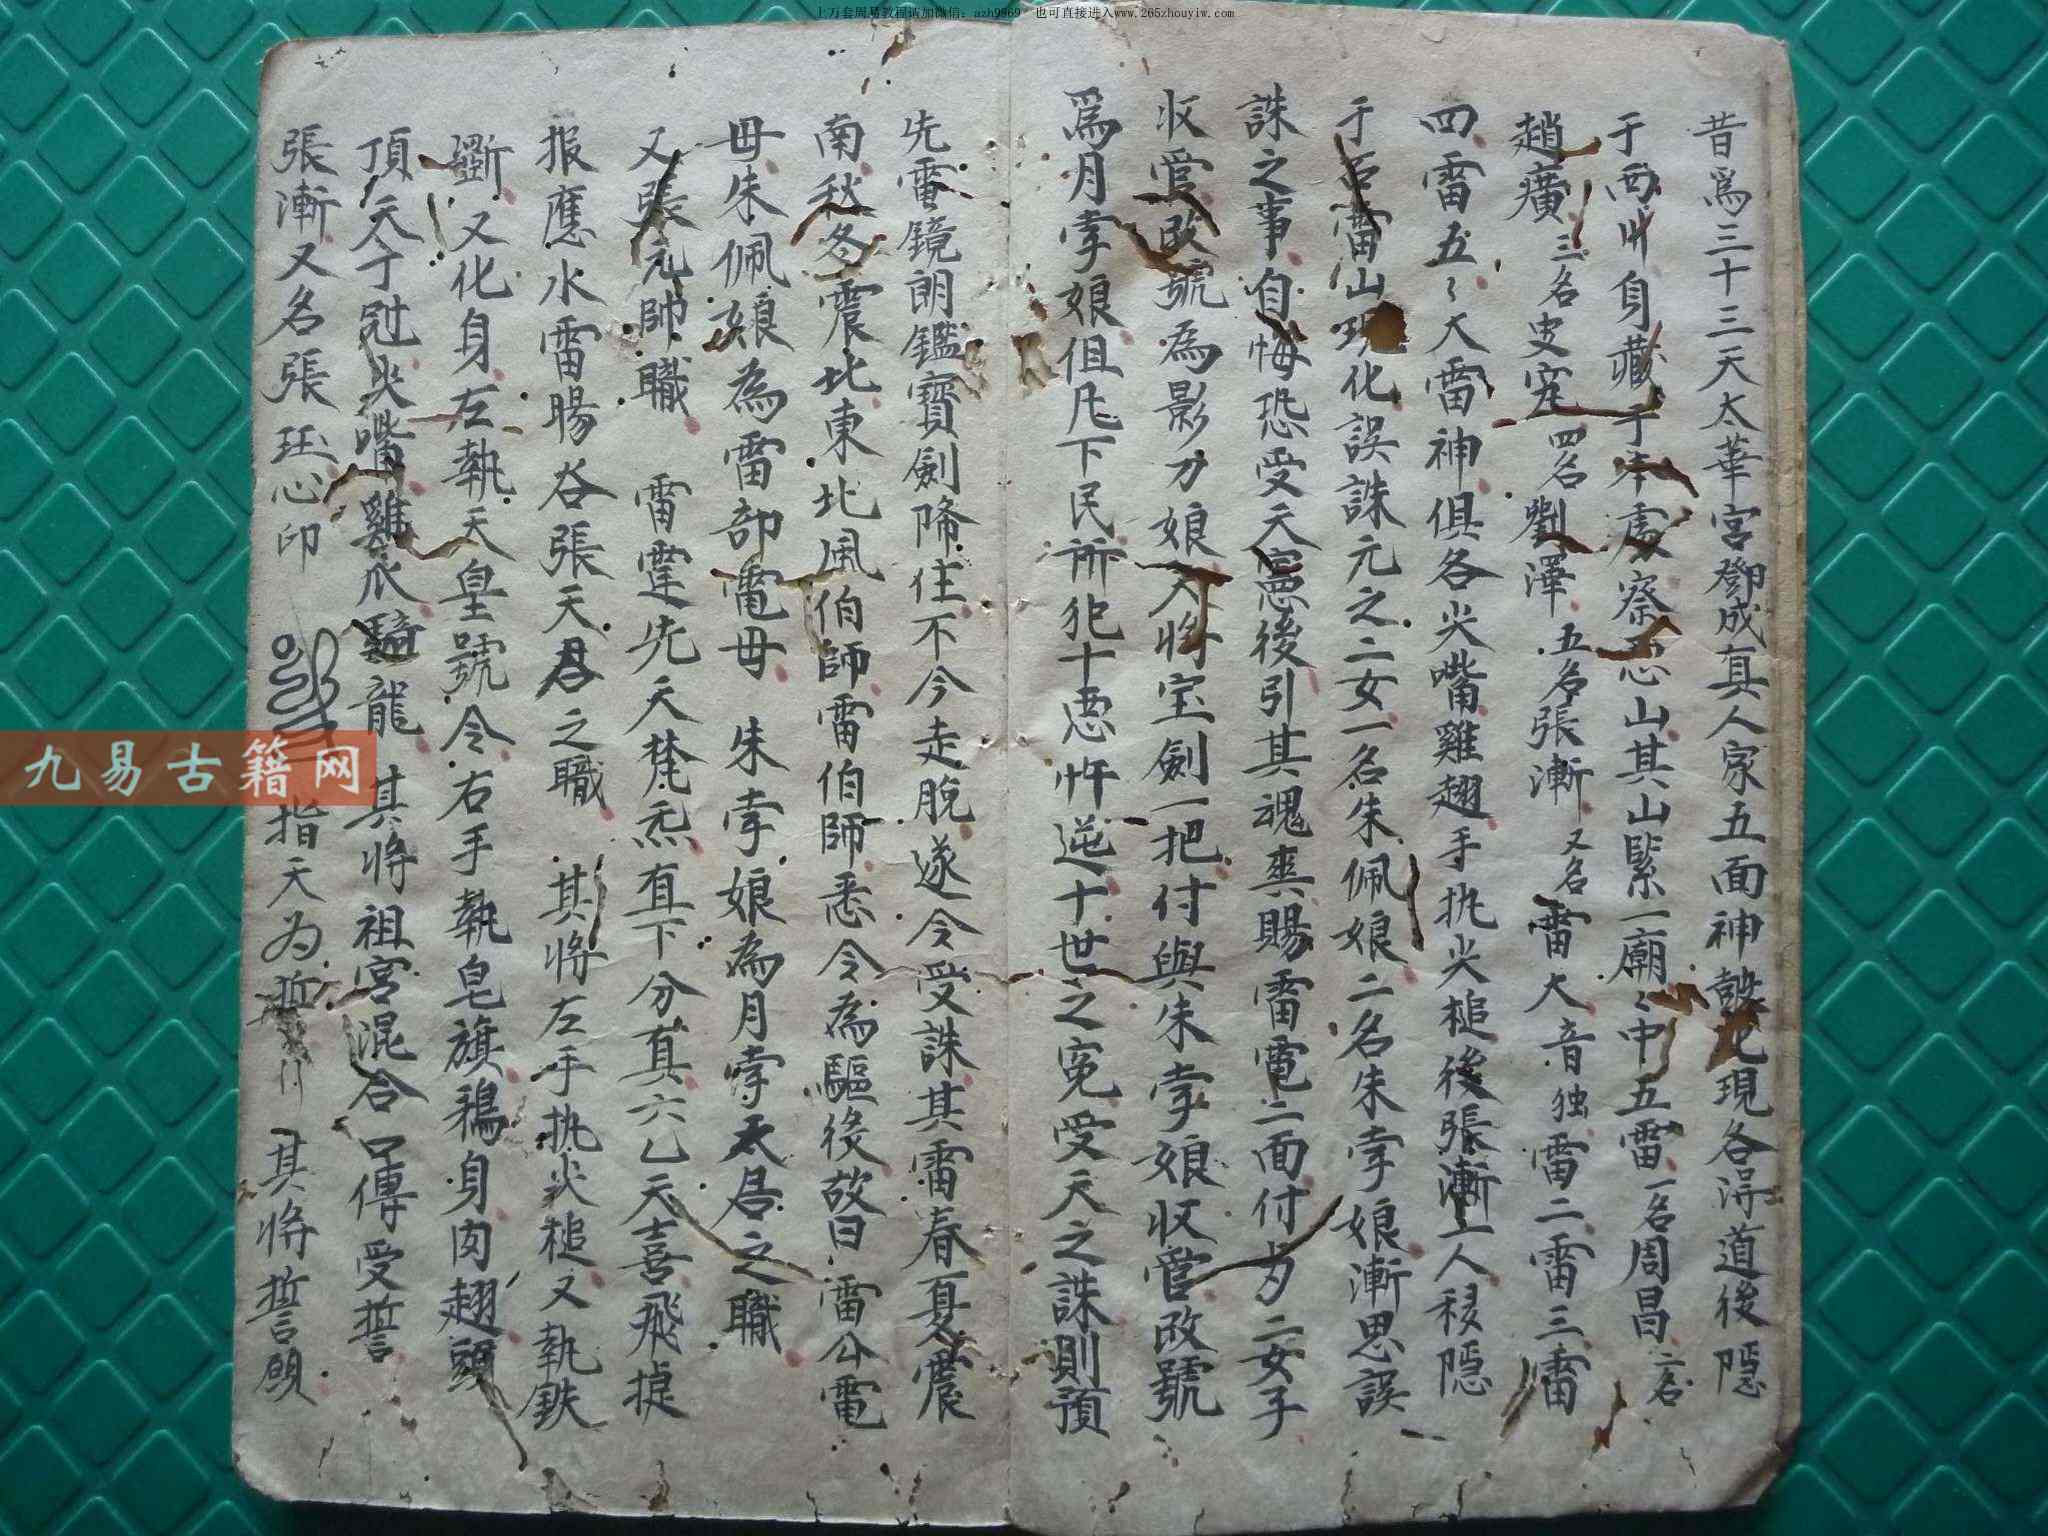 上万套周易教程请加微信：azh9969 也可直接进入www.265zhouyiw.com
昔為三十三天太華宮鄧成真人家五面神鼓化現各得道後隱
于西卅自藏于本處察惡山其山縣一廟〻中五雷一名周昌二名
趙廣三名史寔四名劉澤五名張漸又名雷大音独雷二雷三雷
四雷五〻大雷神俱各尖嘴雞翅手执尖槌後張漸一人移隱
于雷山現化誤誅元之二女一名朱佩娘二名朱孛娘漸思誤
誅之事自悔恐受天憲後引其魂爽賜雷電二面付为二女子
收管改號為影刀娘又將宝劍一把付與朱孛娘收管改號
為月孛娘但凡下民所犯十惡忤逆十世之冤受天之誅則預
先雷鏡朗鑑寶劍降住不今走脫遂令受誅其雷春夏震
南秋冬震北東北風伯師雷伯師悉令為驅後故曰雷公電
母朱佩娘為雷部電母 朱孛娘為月孛太君之職
又張元帥職 雷霆先天梵炁直下分真六乙天喜飛捷
报應水雷暘谷張天君之職 其將左手执尖槌又執鉄
斷又化身左執天皇號令右手執皂旗鴉身肉翅頭
頂天丁冠尖嘴雞爪騎龍 其將祖宮混合口傳受誓
張漸又名張珏心印 指天為誓 其將誓願
九易古籍网